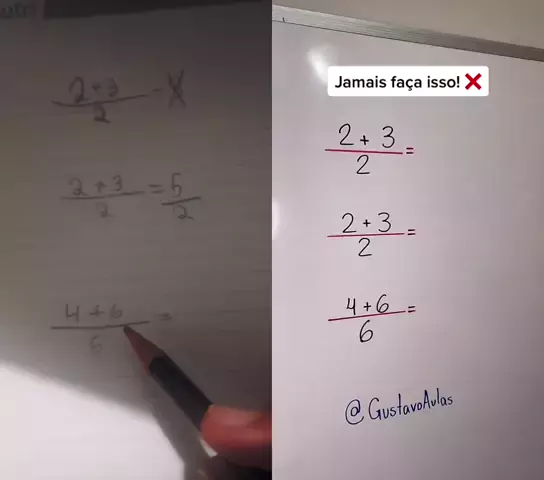 2+3
2
X
2+3 = 5
2 2
4+6 =
6
Jamais faça isso! ❌
2+3 =
2
2+3 =
2
4+6 =
6
@GustavoAulas